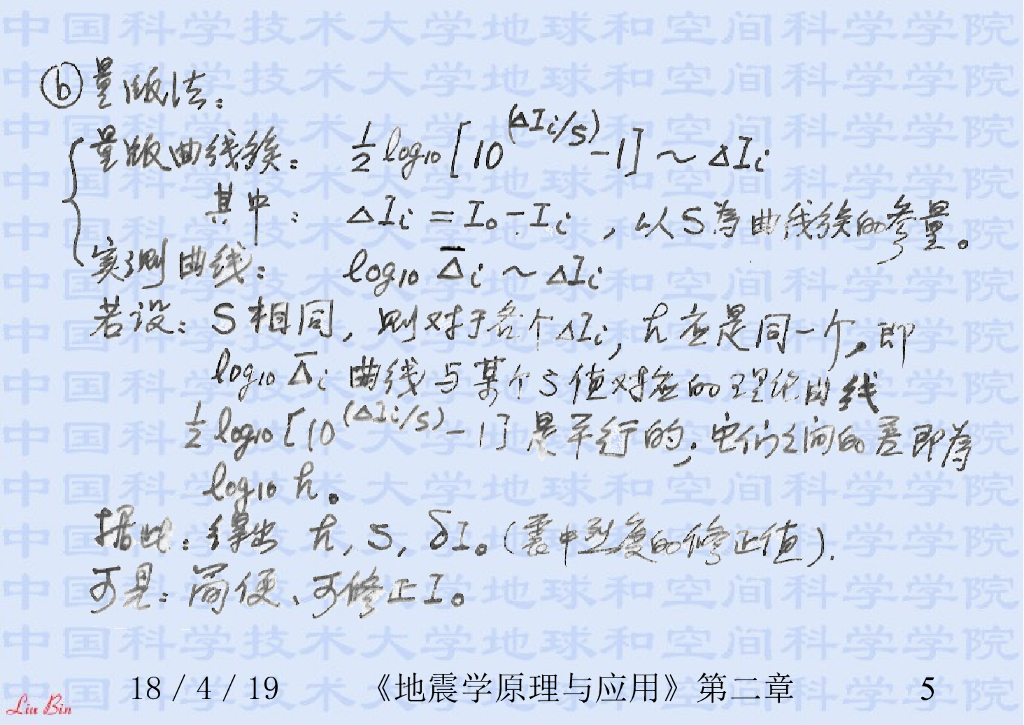 中国科学技术大学地球和空间科学学院
ⓑ量版法：
量版曲线簇： ½ log₁₀ [10^(ΔIi/S) -1] ~ ΔIi
其中： ΔIi = I₀ - Ii ，以S為曲线簇的参量。
实测曲线： log₁₀ Δ̄i ~ ΔIi
若设：S相同，则对于各个ΔIi，h应是同一个，即
log₁₀ Δ̄i 曲线与某个S值对应的理论曲线
½ log₁₀ [10^(ΔIi/S) - 1] 是平行的；它们之间的差即為
log₁₀ h。
据此：得出 h, S, δI₀（震中烈度的修正值）.
可见：简便、可修正I₀
18 / 4 / 19 《地震学原理与应用》第二章 5
Liu Bin